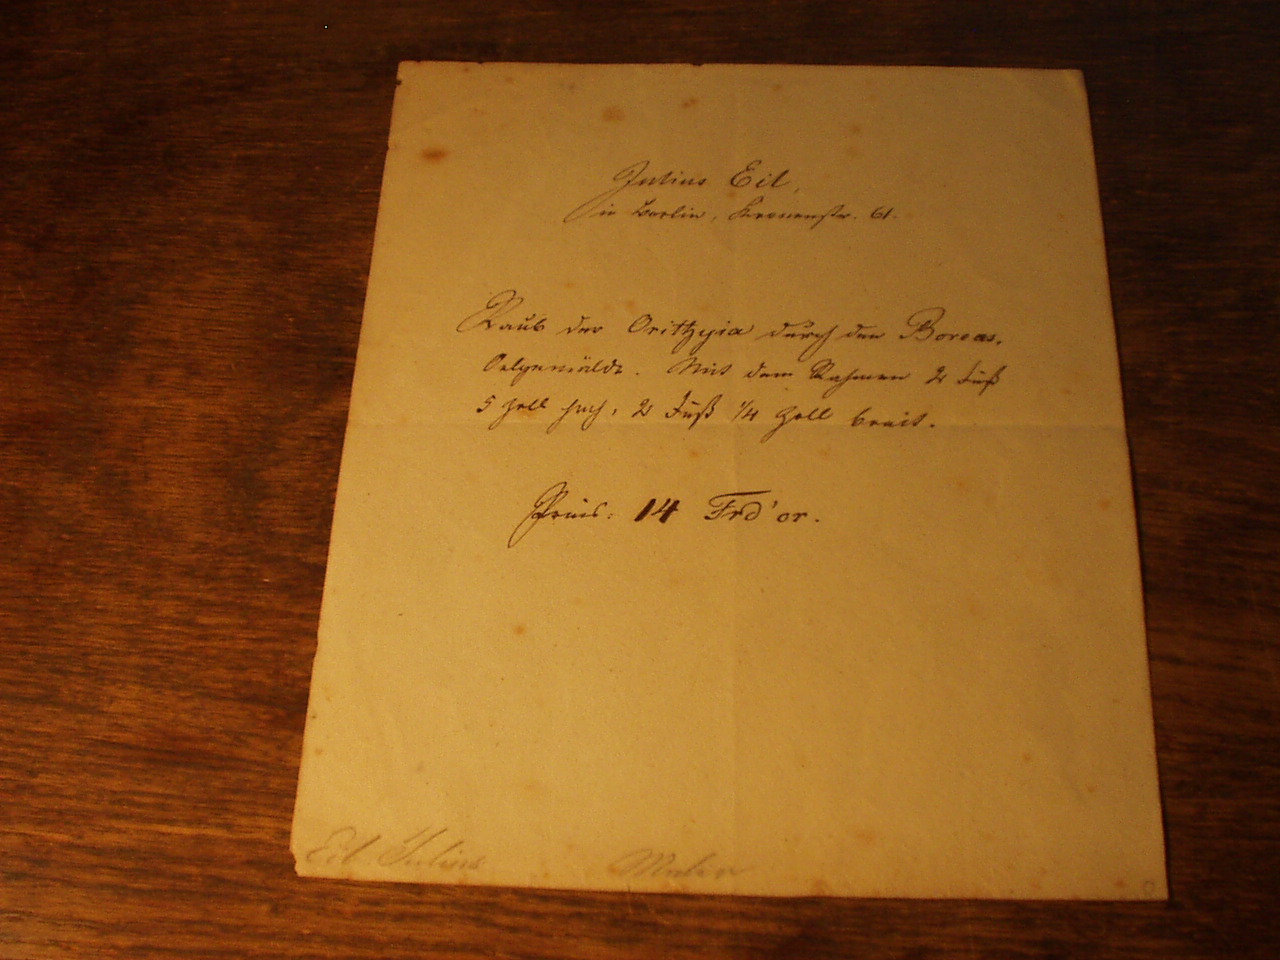 Julius Eil,
in Berlin, Kronenstr. 61.
Raub der Orithyia durch den Boreas.
Oelgemälde. Mit dem Rahmen 2 Fuß
5 Zoll hoch, 2 Fuß 1/4 Zoll breit.
Preis: 14 Frd'or.
Eil Julius Maler